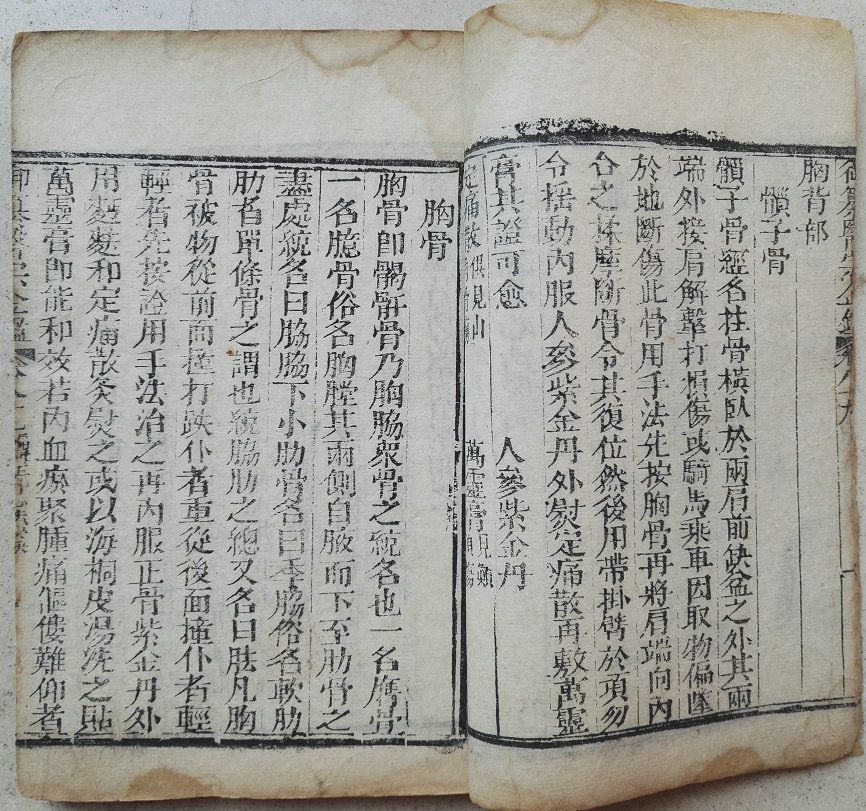 胸背部
鎖子骨
鎖子骨經名拄骨橫臥於兩肩前缺盆之外其兩
端外接肩解擊打損傷或騎馬乘車因取物偏墜
於地斷傷此骨用手法先按胸骨再將肩端向內
合之揉摩斷骨令其復位然後用帶掛臂於項勿
令搖動內服人參紫金丹外熨定痛散再敷萬靈
膏其證可愈
人參紫金丹
定痛散俱見山
萬靈膏見顛
胸骨
胸骨即𩩲骬骨乃胸脇衆骨之統名也一名膺骨
一名臆骨俗名胸膛其兩側自腋而下至肋骨之
盡處統名曰脇脇下小肋骨名曰季脇俗名軟肋
肋者單條骨之謂也統脇肋之總又名曰胠凡胸
骨被物從前面撞打跌仆者重從後面撞仆者輕
輕者先按證用手法治之再內服正骨紫金丹外
用面麩和定痛散灸熨之或以海桐皮湯洗之貼
萬靈膏即能和效若內血瘀聚腫痛傴僂難仰者